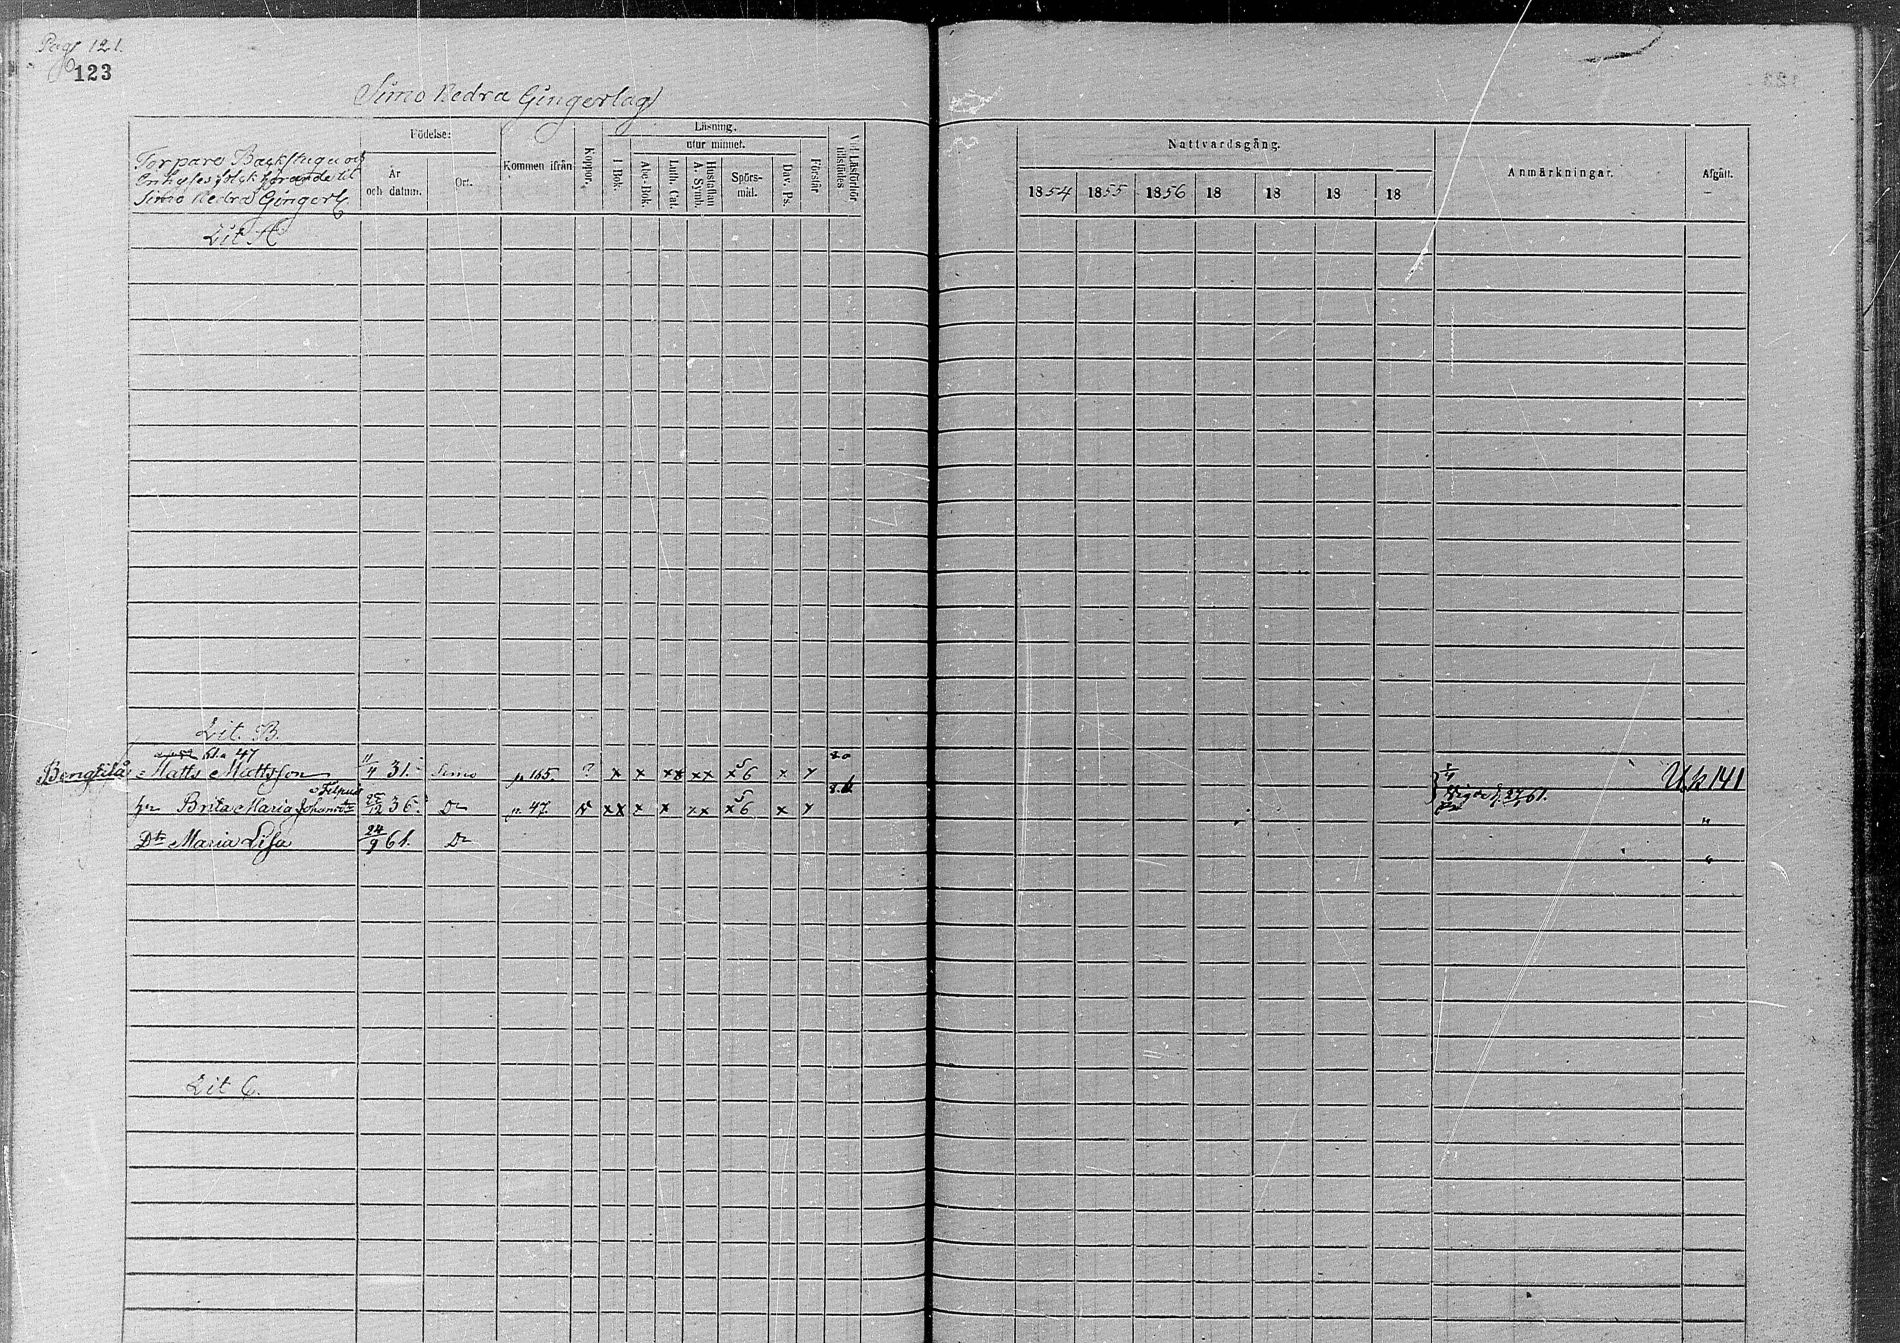 Pag 121.
123
Simo Nedra Gingerlag
Torpare Backstugu och
Enhyses folk hörande til
Simo Nedra Gingerl
Födelse:
År
och datum.
Ort.
Kommen ifrån
Koppor.
Läsning.
utur minnet.
I Bok.
Abc-Bok.
Luth. Cat.
Hustaflan
A. Symb.
Spörs-
mål.
Dav. Ps.
Förstår
Vid Läsförhör
tillstädes
Nattvardsgång.
1854 1855 1856 18 18 18 18
Anmärkningar.
Afgått.
Lit A
Lit. B.
47
Matts Mattsson 11/4 31. Simo p 165. ? x x xx xx x5/6 x y
U.k 141
Brita Maria Johansdtr 25/12 36. Do p. 47. v xx x x xx x5/6 x y Vigde d. 27/ 61. "
Dtr Maria Lisa 24/9 61. Do "
Lit C.